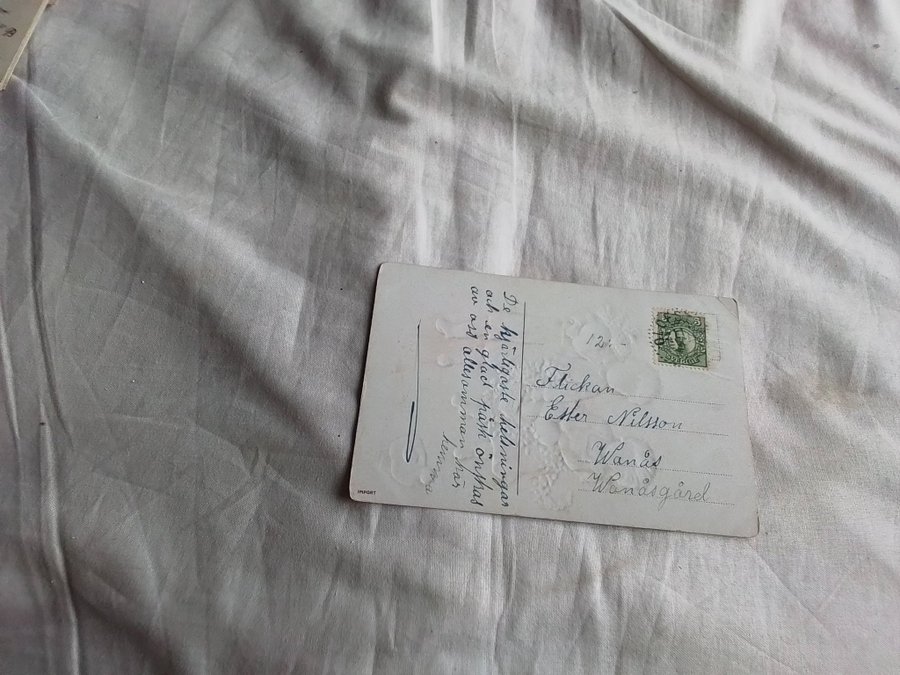 De hjärtligaste helsningar
och en glad påsk önskas
av oss allesamman här
hemma
12:-
Flickan
Ester Nilsson
Wanås
Wanåsgård
IMPORT